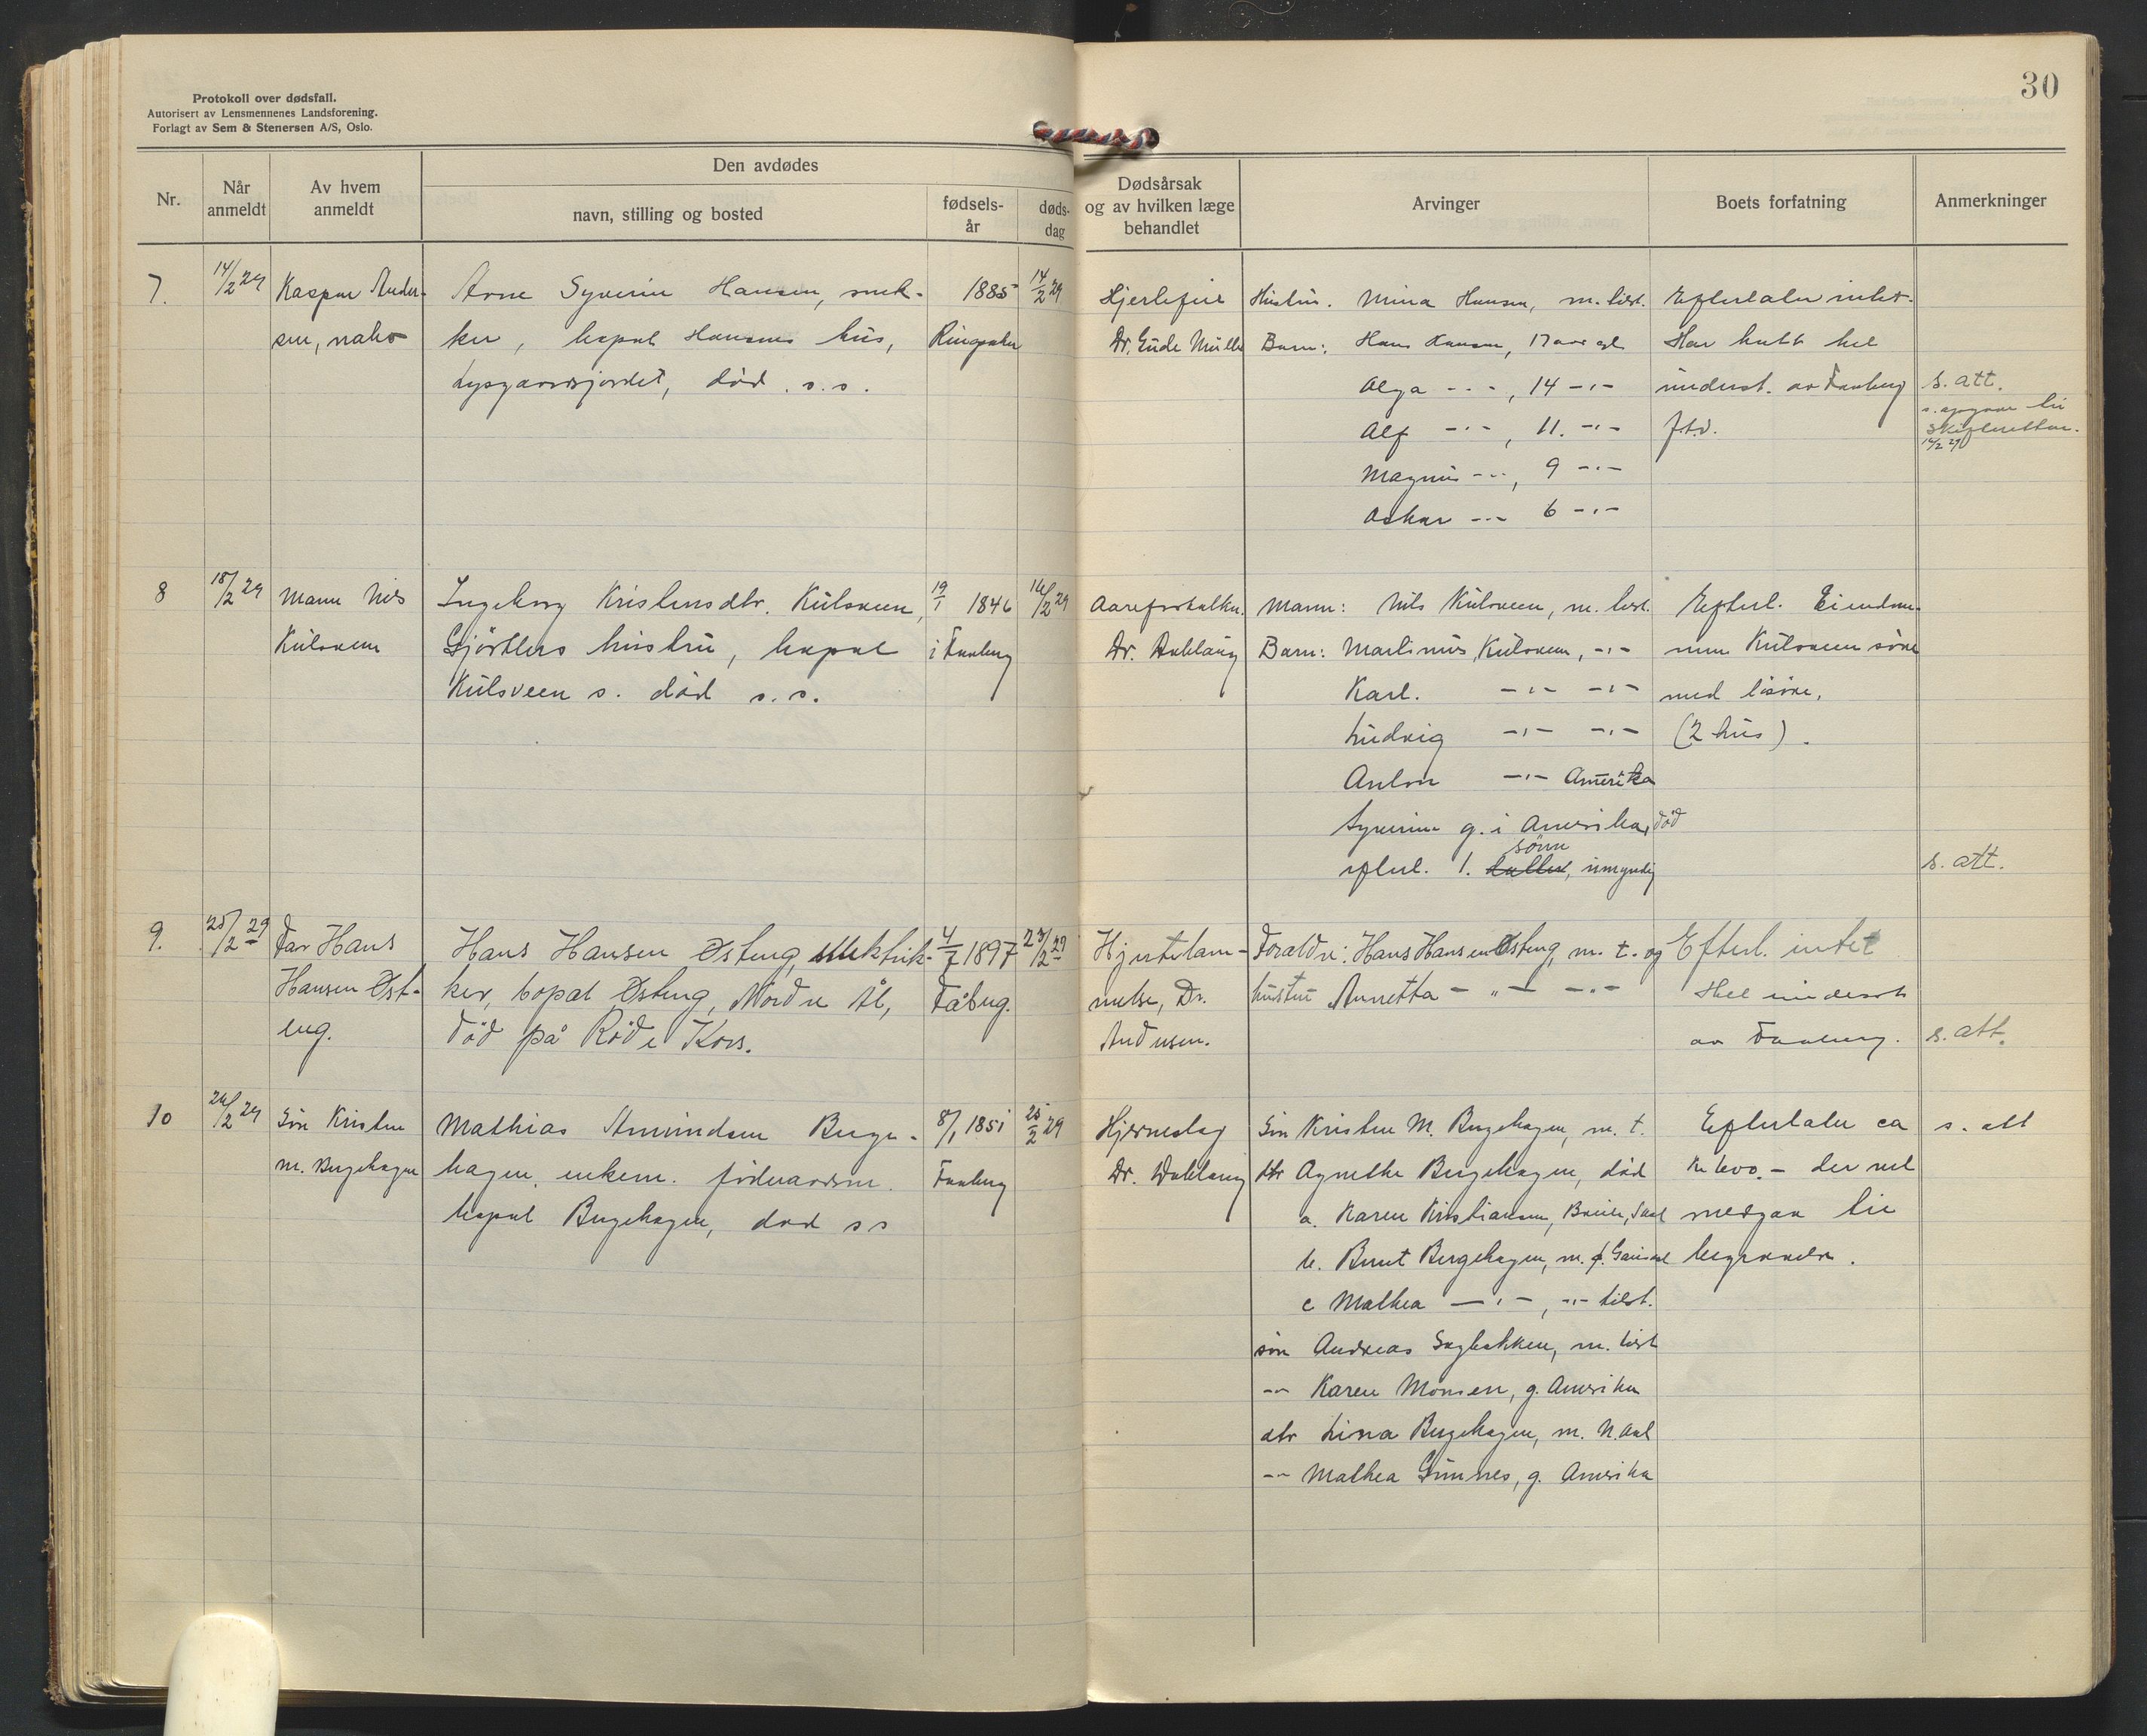 30
Protokoll over dødsfall.
Autorisert av Lensmennenes Landsforening.
Forlagt av Sem & Stenersen A/S, Oslo.
Nr.
Når anmeldt
Av hvem anmeldt
Den avdødes
navn, stilling og bosted
fødsels-år
døds-dag
Dødsårsak og av hvilken læge behandlet
Arvinger
Boets forfatning
Anmerkninger
7. 14/2 29 Kaspar Ander- Arne Syverin Hansen, snek- 1885 14/2 29 Hjertefeil Hustru. Mina Hansen, m. tilst. Efterlater intet.
sen, nabo ker, bopæl Hansens hus, Ringsaker Dr. Gude Müller Barn: Hans Hansen, 17 aar gl Har hatt hel
Lysgaardsjordet, død s. s. Olga -"-, 14 -"- underst. av Faaberg s. att.
Alf -"-, 11. -"- f.t.v. s. opgave til
Magnus -"-, 9 -"- Skifteretten.
Oskar -"- 6 -"- 14/2 29
8 18/2 29 Mann Nils Ingeborg Kristensdtr. Kulsveen, 19/1 1846 16/2 29 Aareforkalkn. Mann: Nils Kulsveen, m. tilst. Efterl. Eiendom-
Kulsveen Gjørtlers hustru, bopæl i Faaberg Dr. Dahlaug Barn: Martinus Kulsveen, -"- men Kulsveen søre
Kulsveen s. død s. s. Karl. -"- -"- med løsøre,
Ludvig -"- -"- (2 hus).
Anton -"- Amerika
Syverine g. i Amerika, død
sønn
efterl. 1. datter, umyndig s. att.
9. 25/2 29 Far Hans Hans Hansen Østeng, elektrik- 4/7 1897 23/2 29 Hjertelam- Foreldre: Hans Hansen Østeng, m. t. og Efterl. intet
Hansen Øst- ker, bopæl Østeng, Nordre Ål, Fåberg. melse, Dr. hustru Annetta - " - - " - Hel underst
eng. død på Røde Kors. Andersen. av Faaberg. s. att.
10 26/2 29 Søn Kristen Mathias Amundsen Berge- 8/1 1851 25/2 29 Hjerneslag Søn Kristen M. Bergehagen, m. t. Efterlater ca s. att
M. Bergehagen hagen, enkem.føderaadsm. Faaberg Dr. Dahlaug dtr Agnethe Bergehagen, død kr 600.- der vel
bopæl Bergehagen, død s s a. Karen Kristiansen, medgaa til
b. Bernt Bergehagen, m. Gausdal begravelse.
c Mathea -"-, -"- tilst.
søn Andreas Sagbakken, m. tilst
-"- Karen Monsen, g. Amerika
dtr Lina Bergehagen, m. N. Aal
-"- Mathea Gimnes, g. Amerika